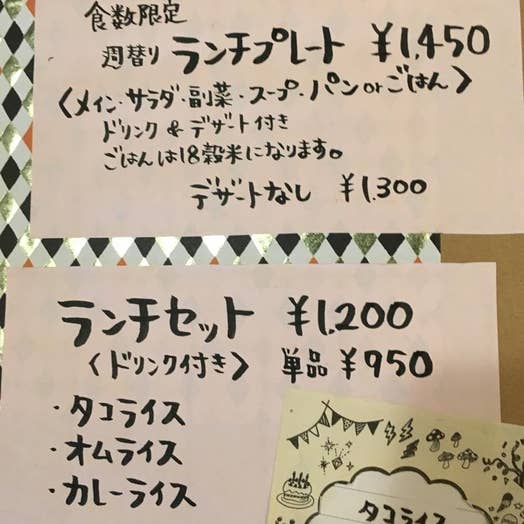 食数限定
週替り ランチプレート ¥1,450
〈メイン・サラダ・副菜・スープ・パンorごはん〉
ドリンク & デザート付き
ごはんは18穀米になります。
デザートなし ¥1,300
ランチセット ¥1,200
〈ドリンク付き〉 単品 ¥950
・タコライス
・オムライス
・カレーライス
タコライス